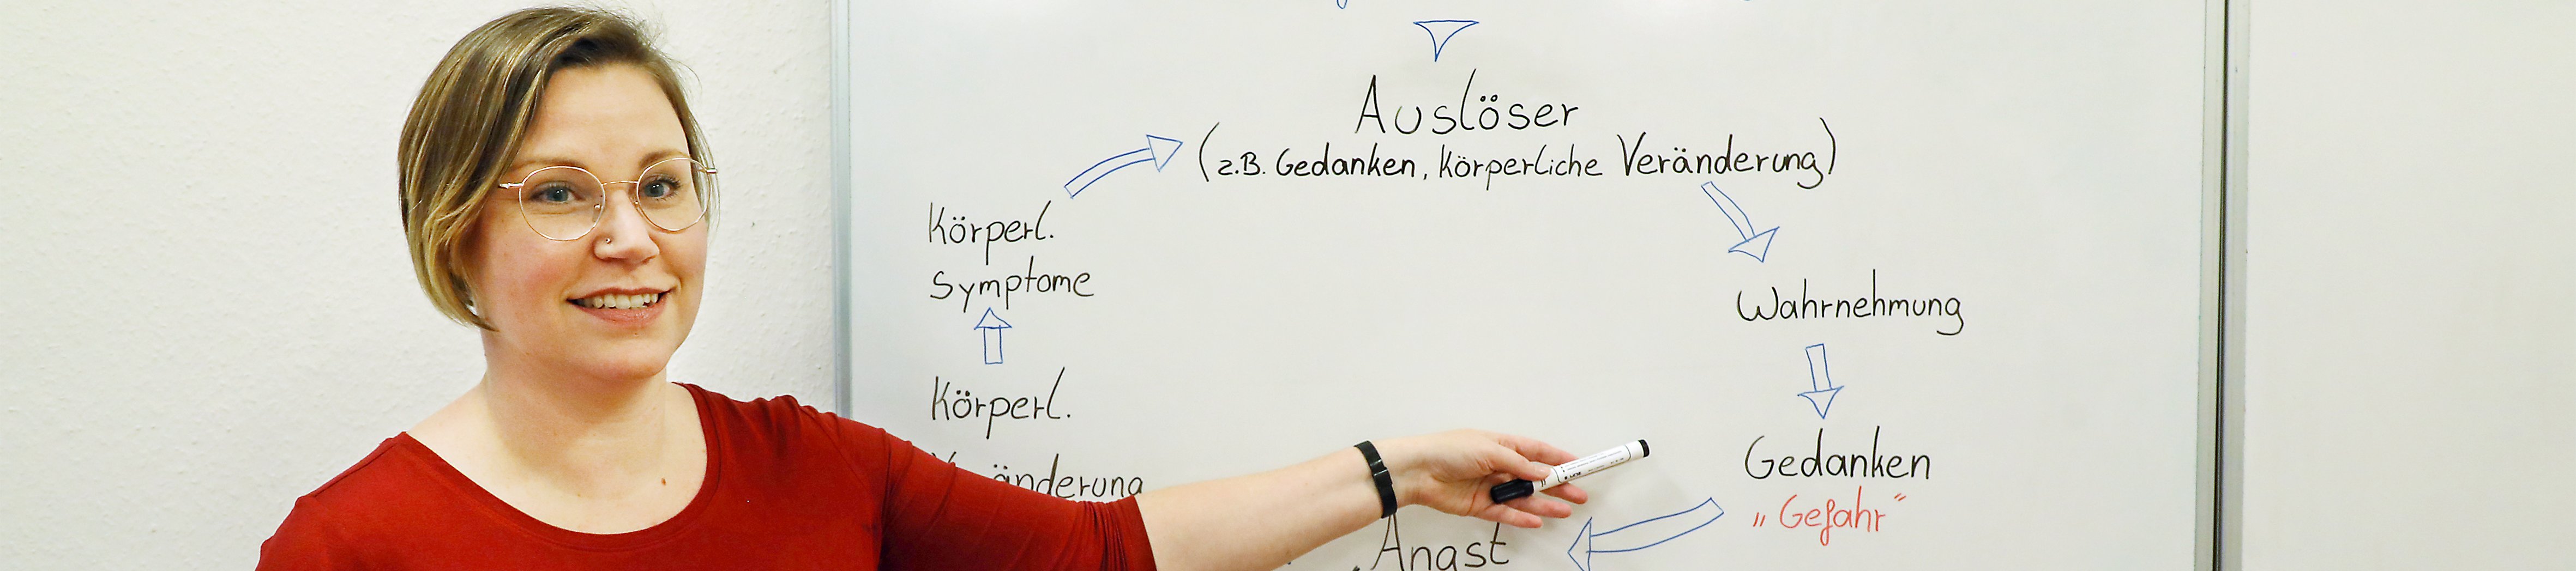 Auslöser
(z.B. Gedanken, körperliche Veränderung)
Körperl.
Symptome
Wahrnehmung
Körperl.
Veränderung
Gedanken
„Gefahr“
Angst